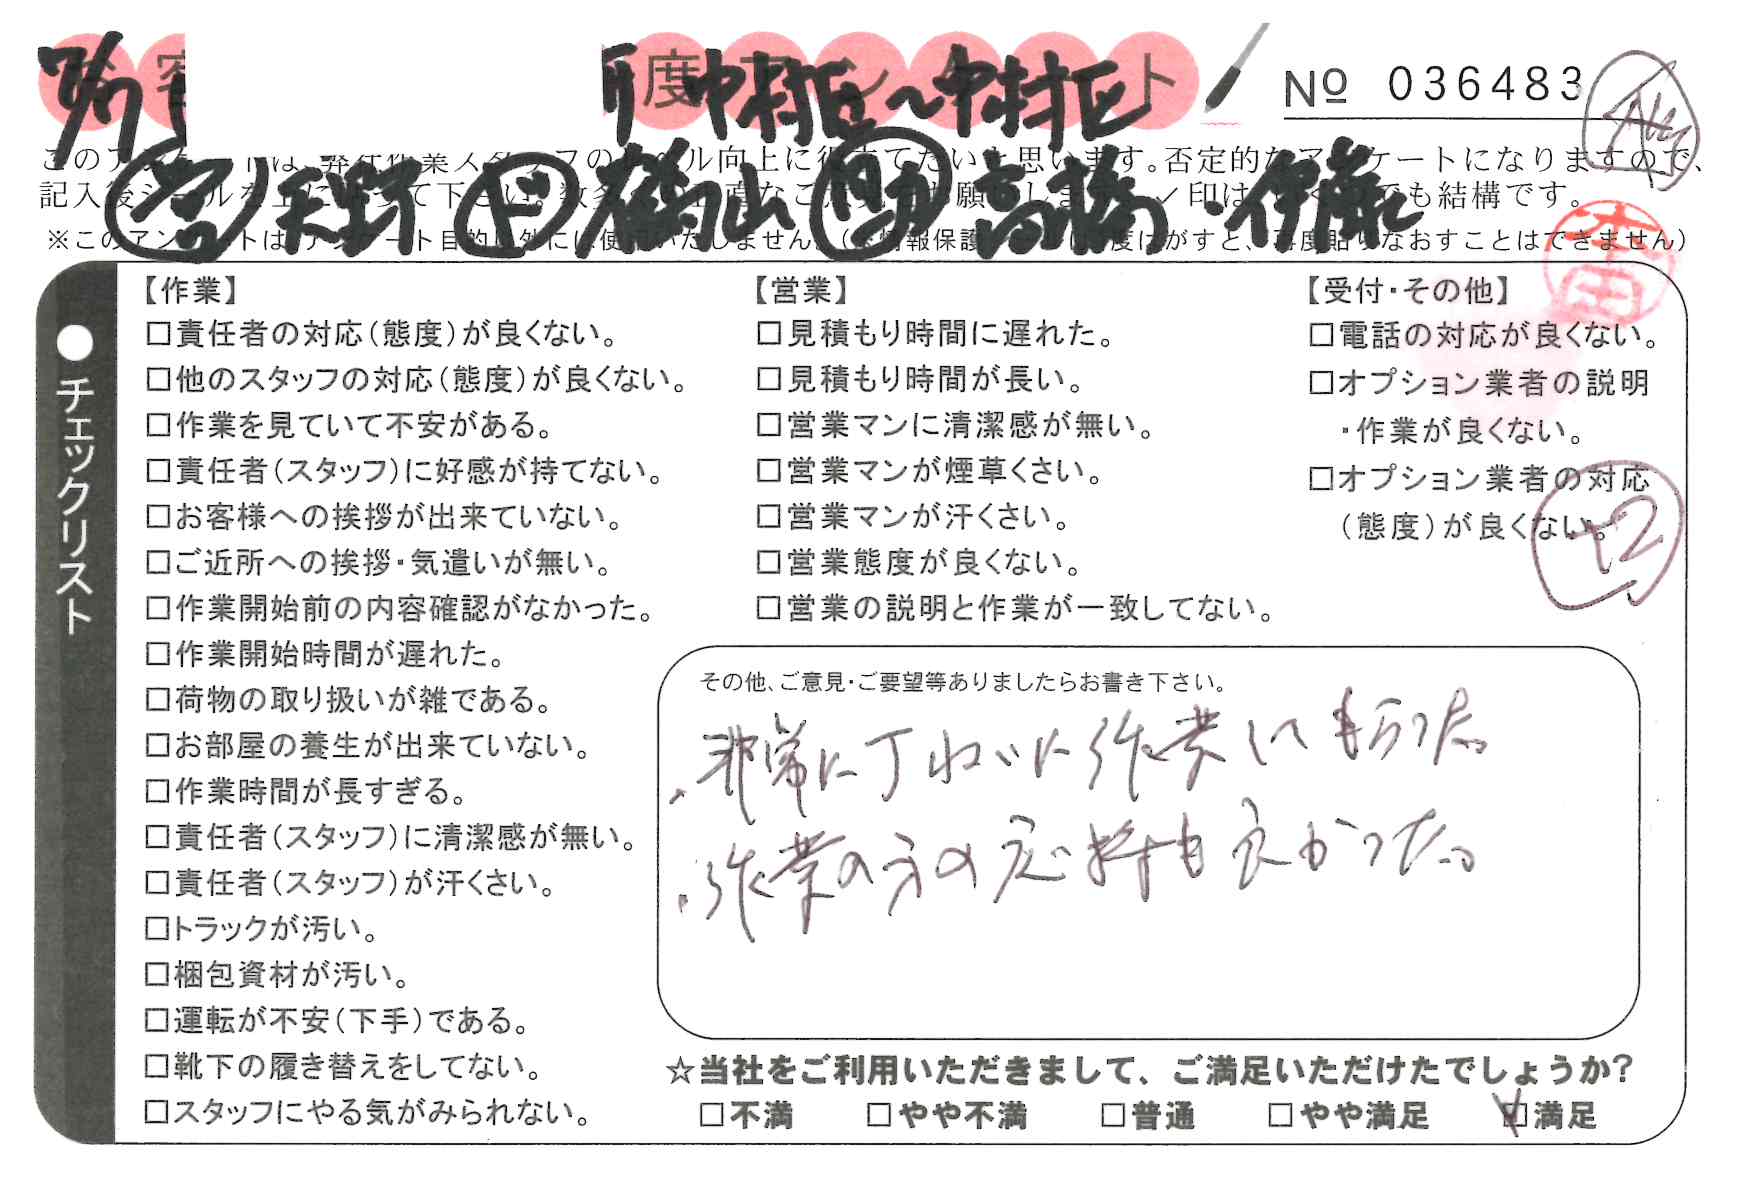 7/7 中村区〜中村区
No 036483
営 天野 ド 鶴山 助 高橋・伊藤
記入後シールを上に貼って下さい。 印は でも結構です。
※このアンケートはアンケート目的以外には使用いたしません。(※情報保護シールは1度はがすと、再度貼りなおすことはできません)
本田
●チェックリスト
【作業】
□責任者の対応(態度)が良くない。
□他のスタッフの対応(態度)が良くない。
□作業を見ていて不安がある。
□責任者(スタッフ)に好感が持てない。
□お客様への挨拶が出来ていない。
□ご近所への挨拶・気遣いが無い。
□作業開始前の内容確認がなかった。
□作業開始時間が遅れた。
□荷物の取り扱いが雑である。
□お部屋の養生が出来ていない。
□作業時間が長すぎる。
□責任者(スタッフ)に清潔感が無い。
□責任者(スタッフ)が汗くさい。
□トラックが汚い。
□梱包資材が汚い。
□運転が不安(下手)である。
□靴下の履き替えをしてない。
□スタッフにやる気がみられない。
【営業】
□見積もり時間に遅れた。
□見積もり時間が長い。
□営業マンに清潔感が無い。
□営業マンが煙草くさい。
□営業マンが汗くさい。
□営業態度が良くない。
□営業の説明と作業が一致してない。
【受付・その他】
□電話の対応が良くない。
□オプション業者の説明
・作業が良くない。
□オプション業者の対応
(態度)が良くない。
+2
その他、ご意見・ご要望等ありましたらお書き下さい。
・非常に丁ねいに作業してもらった。
・作業の方の応対も良かった。
☆当社をご利用いただきまして、ご満足いただけたでしょうか?
□不満 □やや不満 □普通 □やや満足 ☑満足